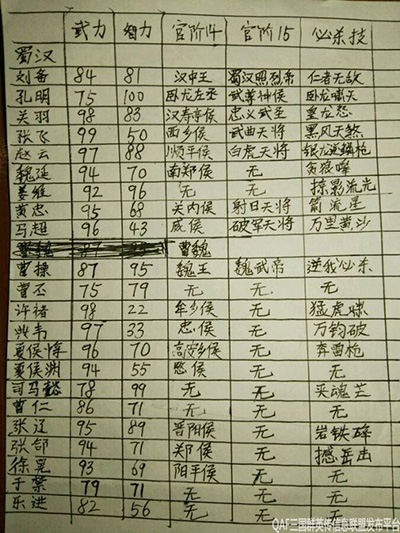 武力 智力 官阶14 官阶15 必杀技
蜀汉
刘备 84 81 汉中王 蜀汉照烈帝 仁者无敌
孔明 75 100 卧龙左丞 武尊神侯 卧龙啸天
关羽 98 83 汉寿亭侯 忠义武圣 皇龙忽
张飞 99 50 西乡侯 武曲天将 黑风天煞
赵云 97 88 顺平侯 白虎天将 银龙逆鳞枪
魏延 94 70 南郑侯 无 贪狼嗥
姜维 92 96 无 无 掠影流光
黄忠 95 68 关内侯 射日天将 箭流星
马超 96 43 威侯 破军天将 万里黄沙
曹魏
曹操 87 95 魏王 魏武帝 逆我必杀
曹丕 75 79 无 无 无
许褚 98 22 牟乡侯 无 猛虎啸
典韦 97 33 忠侯 无 万钧破
夏侯惇 96 70 高安乡侯 无 奔雷枪
夏侯渊 94 55 愍侯 无 无
司马懿 78 99 无 无 灭魂芒
曹仁 86 71 无 无 无
张辽 95 89 晋阳侯 无 岩铁碎
张郃 94 71 郑侯 无 撼岳击
徐晃 93 69 阳平侯 无 无
于禁 79 71 无 无 无
乐进 82 56 无 无 无
QAF三国群英传信息联盟发布平台